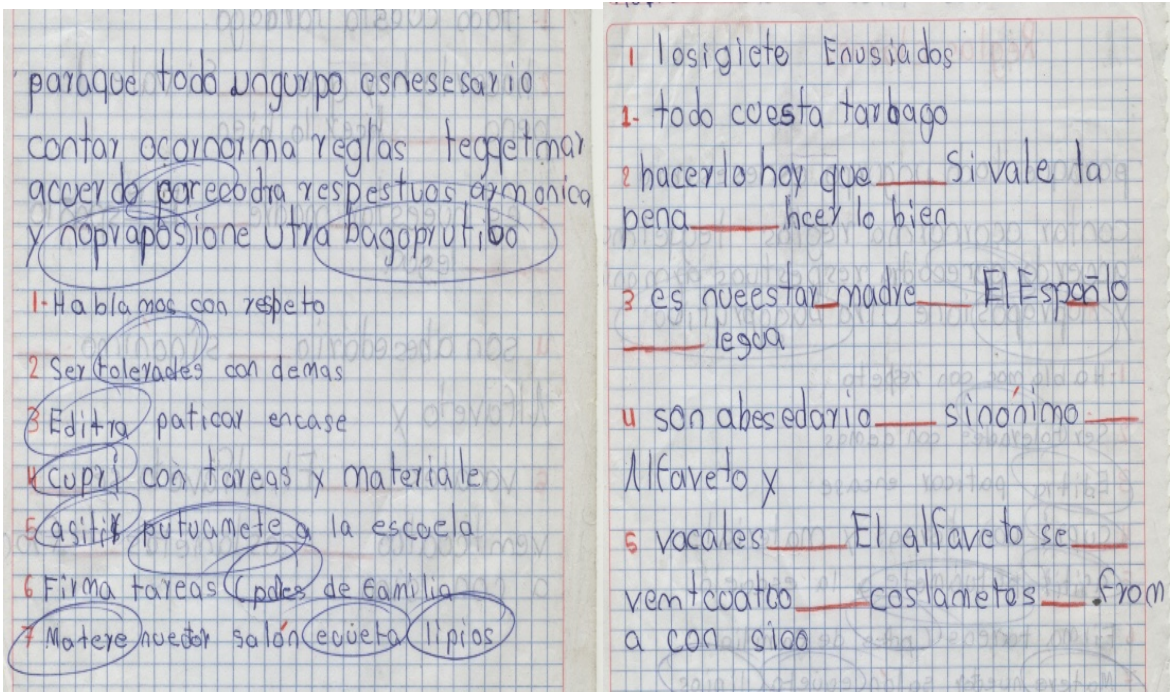 paraque todo ungurpo esnesesario
contar ocornorma reglas teggetmar
acuerdo parecodra respestuos armonica
y nopraposione utra bagoprutibo
1-Hablamos con respeto
2 Ser tolerades con demas
3 Editra paticar encase
4 cupri con tareas y materiale
5 asitir putuamete a la escuela
6 Firma tareas (pales de familia
7 Matere nuestor salón ecueta lipios
1 losigiete Enusiados
1- todo cuesta tarbago
2 hacerlo hoy que ____ Si vale la
pena ____ hcer lo bien
3 es nueestar_madre___ El Españlo
____ legua
4 son abesedario ___ sinónimo ___
Alfaveto y
5 vocales ____ El alfaveto se ___
ventcuatoo ____ coslametos ___.from
a con sico